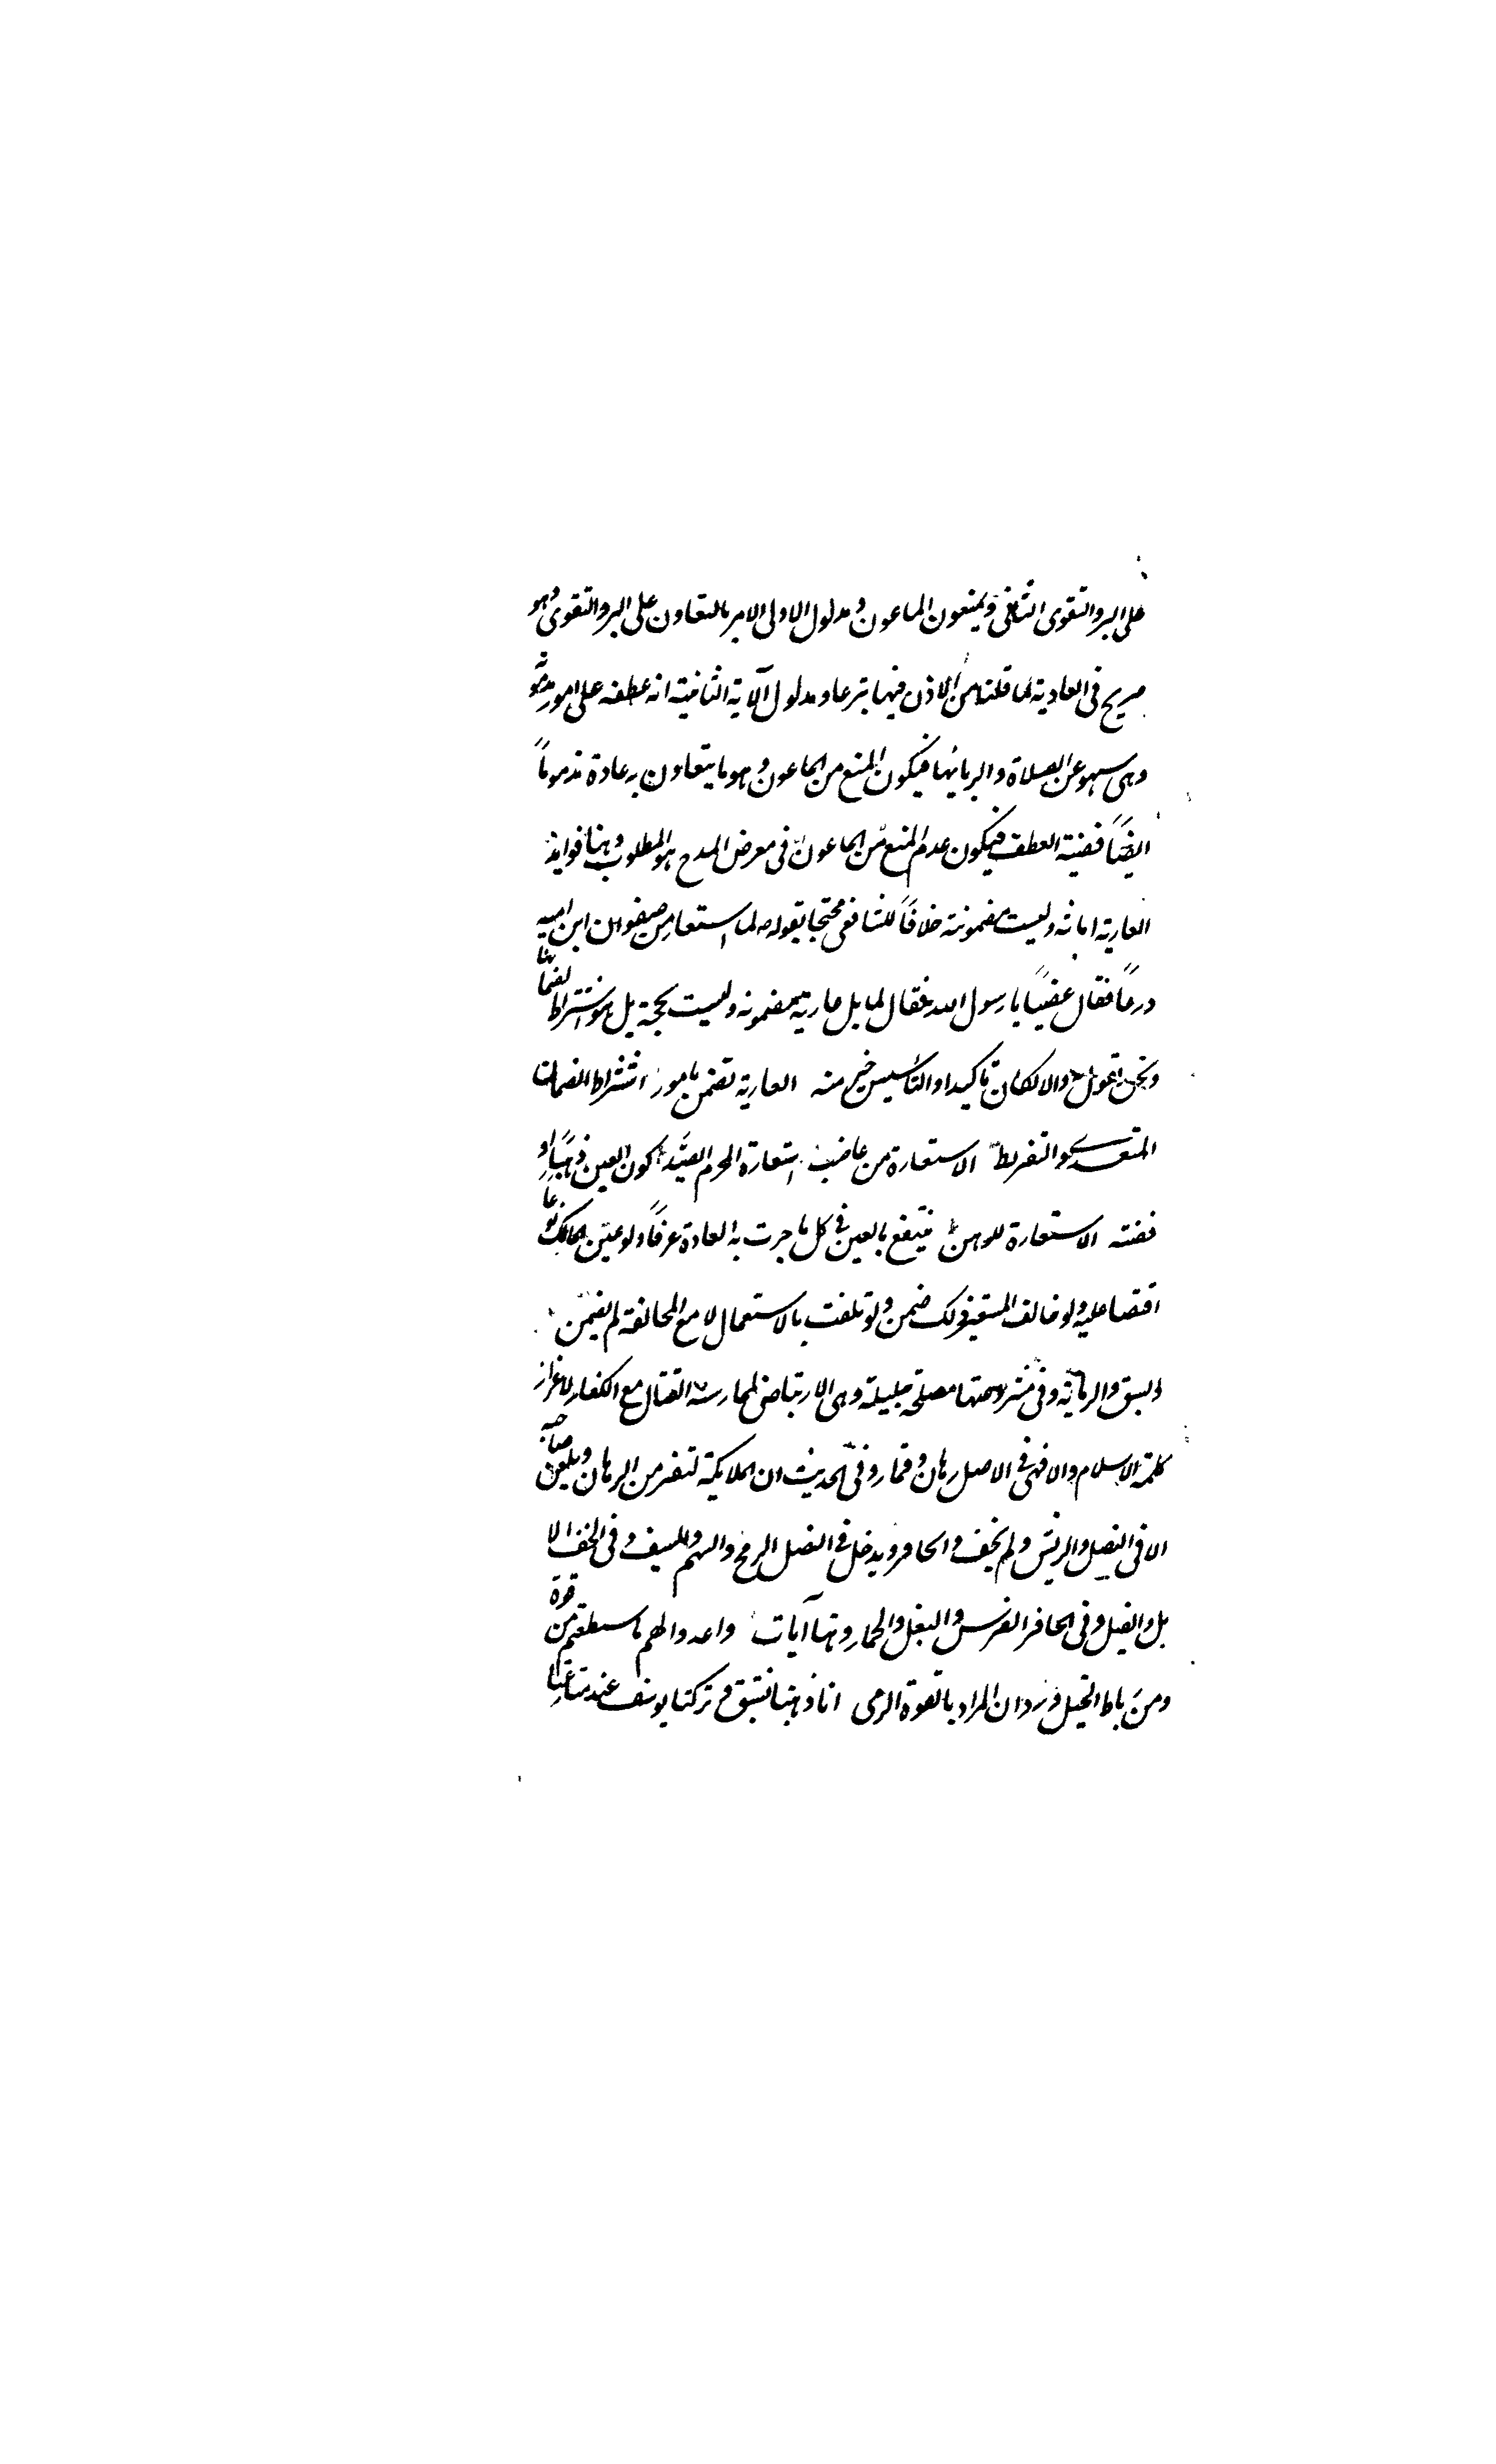 على البر والتقوى الثانى ويمنعون الماعون ومدلول الاولى الامر بالتعاون على البر والتقوى وهو
صريح فى العارية لما قلنا من الاذن فيها تبرعا ومدلول الآية الثانية انه عطفه على امور مذمومة
وهى سهو عن الصلاة والريا فيها فيكون المنع من الماعون وهو ما يتعاون به عادة مذموماً
ايضاً قضية العطف فيكون عدم المنع من الماعون فى معرض المدح وهو المطلوب وهنا فوايد
العارية امانة وليست مضمونة خلافاً للشافعى محتجا بقوله لما استعار من صفوان ابن امية
درعاً فقال غصباً يا رسول الله فقال لا بل عارية مضمونة وليست بحجة بل هو اشتراط لضمانها
ونحن نقول به والا لكان تأكيدا والتأسيس خير منه العارية تضمن بامور اشتراط الضمان
التعدى والتفريط الاستعارة من غاصب استعارة المحرم الصيد كون العين ذهباً او
فضة الاستعارة للرهن ينتفع بالعين فى كل ما جرت به العادة عرفاً ولو عين المالك نوعاً
اقتصر عليه ولو خالف المستعير ذلك ضمن ولو تلفت بالاستعمال لا مع المخالفة لم يضمن
السبق والرماية وفى مشروعيتها مصلحة جليلة وهى الارتياض لممارسة القتال مع الكفار لاعزاز
كلمة الاسلام والا فهى فى الاصل رهان وقمار وفى الحديث ان الملايكة لتنفر من الرهان ويلعن صاحبه
الا فى النصل والريش والخف والحافر ويدخل فى النصل الرمح والسهم والسيف وفى الخف الا
بل والفيل وفى الحافر الفرس والبغل والحمار وهنا آيات واعدوا لهم ما استطعتم من قوة
ومن رباط الخيل ورد ان المراد بالقوة الرمى انا ذهبنا نستبق وتركنا يوسف عند متاعنا